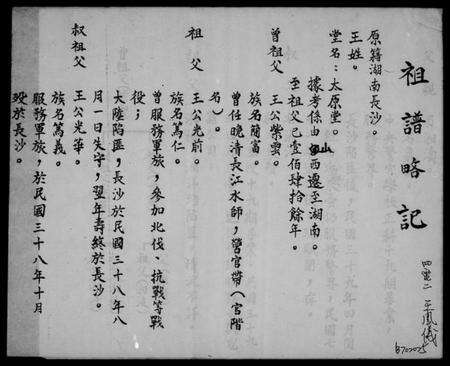 祖譜略記
原籍湖南長沙。
王姓。
堂名：太原堂。
據考係由山西遷至湖南。
至祖父已壹佰肆拾餘年。
曾祖父
王公紫雲。
族名蘭富。
曾任晚清長江水師，營官帶（官階
名）。
祖父
王公光前。
族名篤仁。
曾服務軍旅，參加北伐、抗戰等戰
役；
大陸陷匪，長沙於民國三十八年八
月一日失守，翌年壽終於長沙。
叔祖父
王公光華。
族名篤義。
服務軍旅，於民國三十八年十月
歿於長沙。
王鳳儀